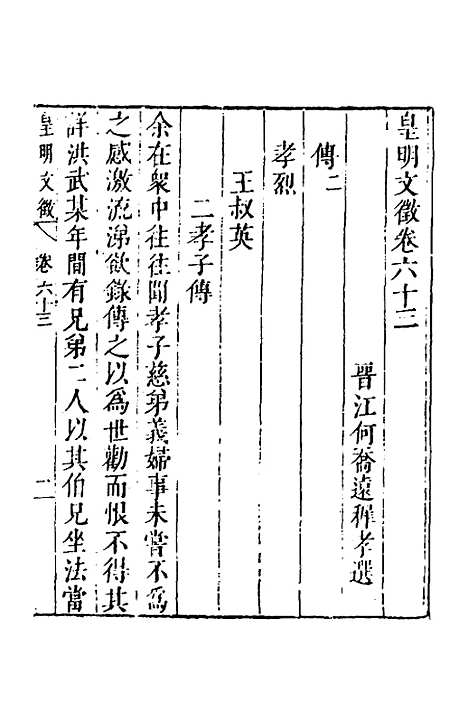 皇明文徵卷六十三
晉江何喬遠穉孝選
傳二
孝烈
王叔英
二孝子傳
余在衆中往往聞孝子慈弟義婦事未嘗不爲
之感激流涕欲錄傳之以爲世勸而恨不得其
詳洪武某年間有兄弟二人以其伯兄坐法當
皇明文徵 卷六十三 一